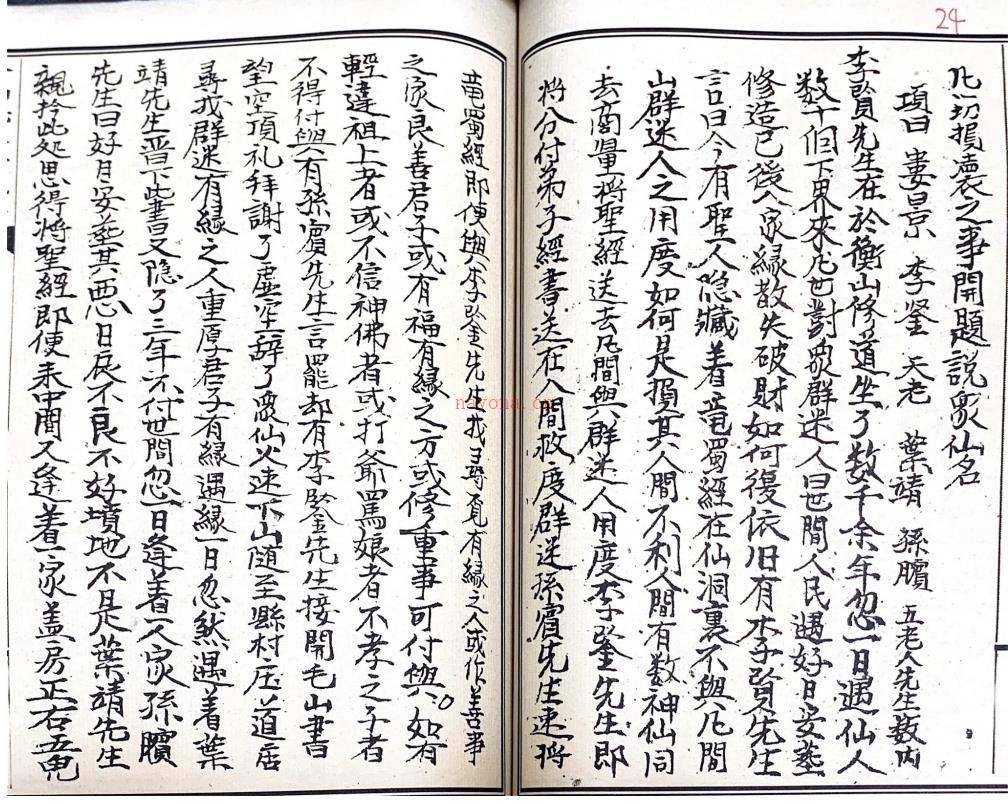 24
凡一切損瀼衣之事開題説衆仙名
項曰 婁景 李筌 天老 葉靖 孫臏 五老人先生数内
李貿先生在於衡山修道坐了数千余年忽一日遇仙人
数十個下界來凡世對衆群迷人曰世間人民遇好日安𦵏
修造已後人家緣散失破財如何復依旧有李貿先生
言曰今有聖人隐藏着竜蜀經在仙洞裏不與凡間
山群迷人之用度如何是損其人間不利人間有数神仙同
去商量將聖經送去凡間與群迷人用度李筌先生即
將分付弟子經書送在人間救度群迷孫賓先生速將
竜蜀經即便與李筌先生找尋覓有緣之人或作善事
之家良善君子或有福有緣之方或修重事可付與如有
輕違祖上者或不信神佛者或打爺罵娘者不孝之子者
不得付與有孫賓先生言罷却有李筌先生接開毛山書
望空頂礼拜謝了虚空辞了衆仙火速下山随至縣村庄道店
尋找群迷有緣之人重厚君子有緣遇緣一日忽然遇着葉
靖先生晋下此書又隐了三年不付世間忽一日逢着一人家孫臏
先生曰好月安𦵏其恶日辰不良不好墳地不是葉靖先生
親拎此处思得將聖經即便未中間又逢着一家盖房正右五鬼
nayona.cn